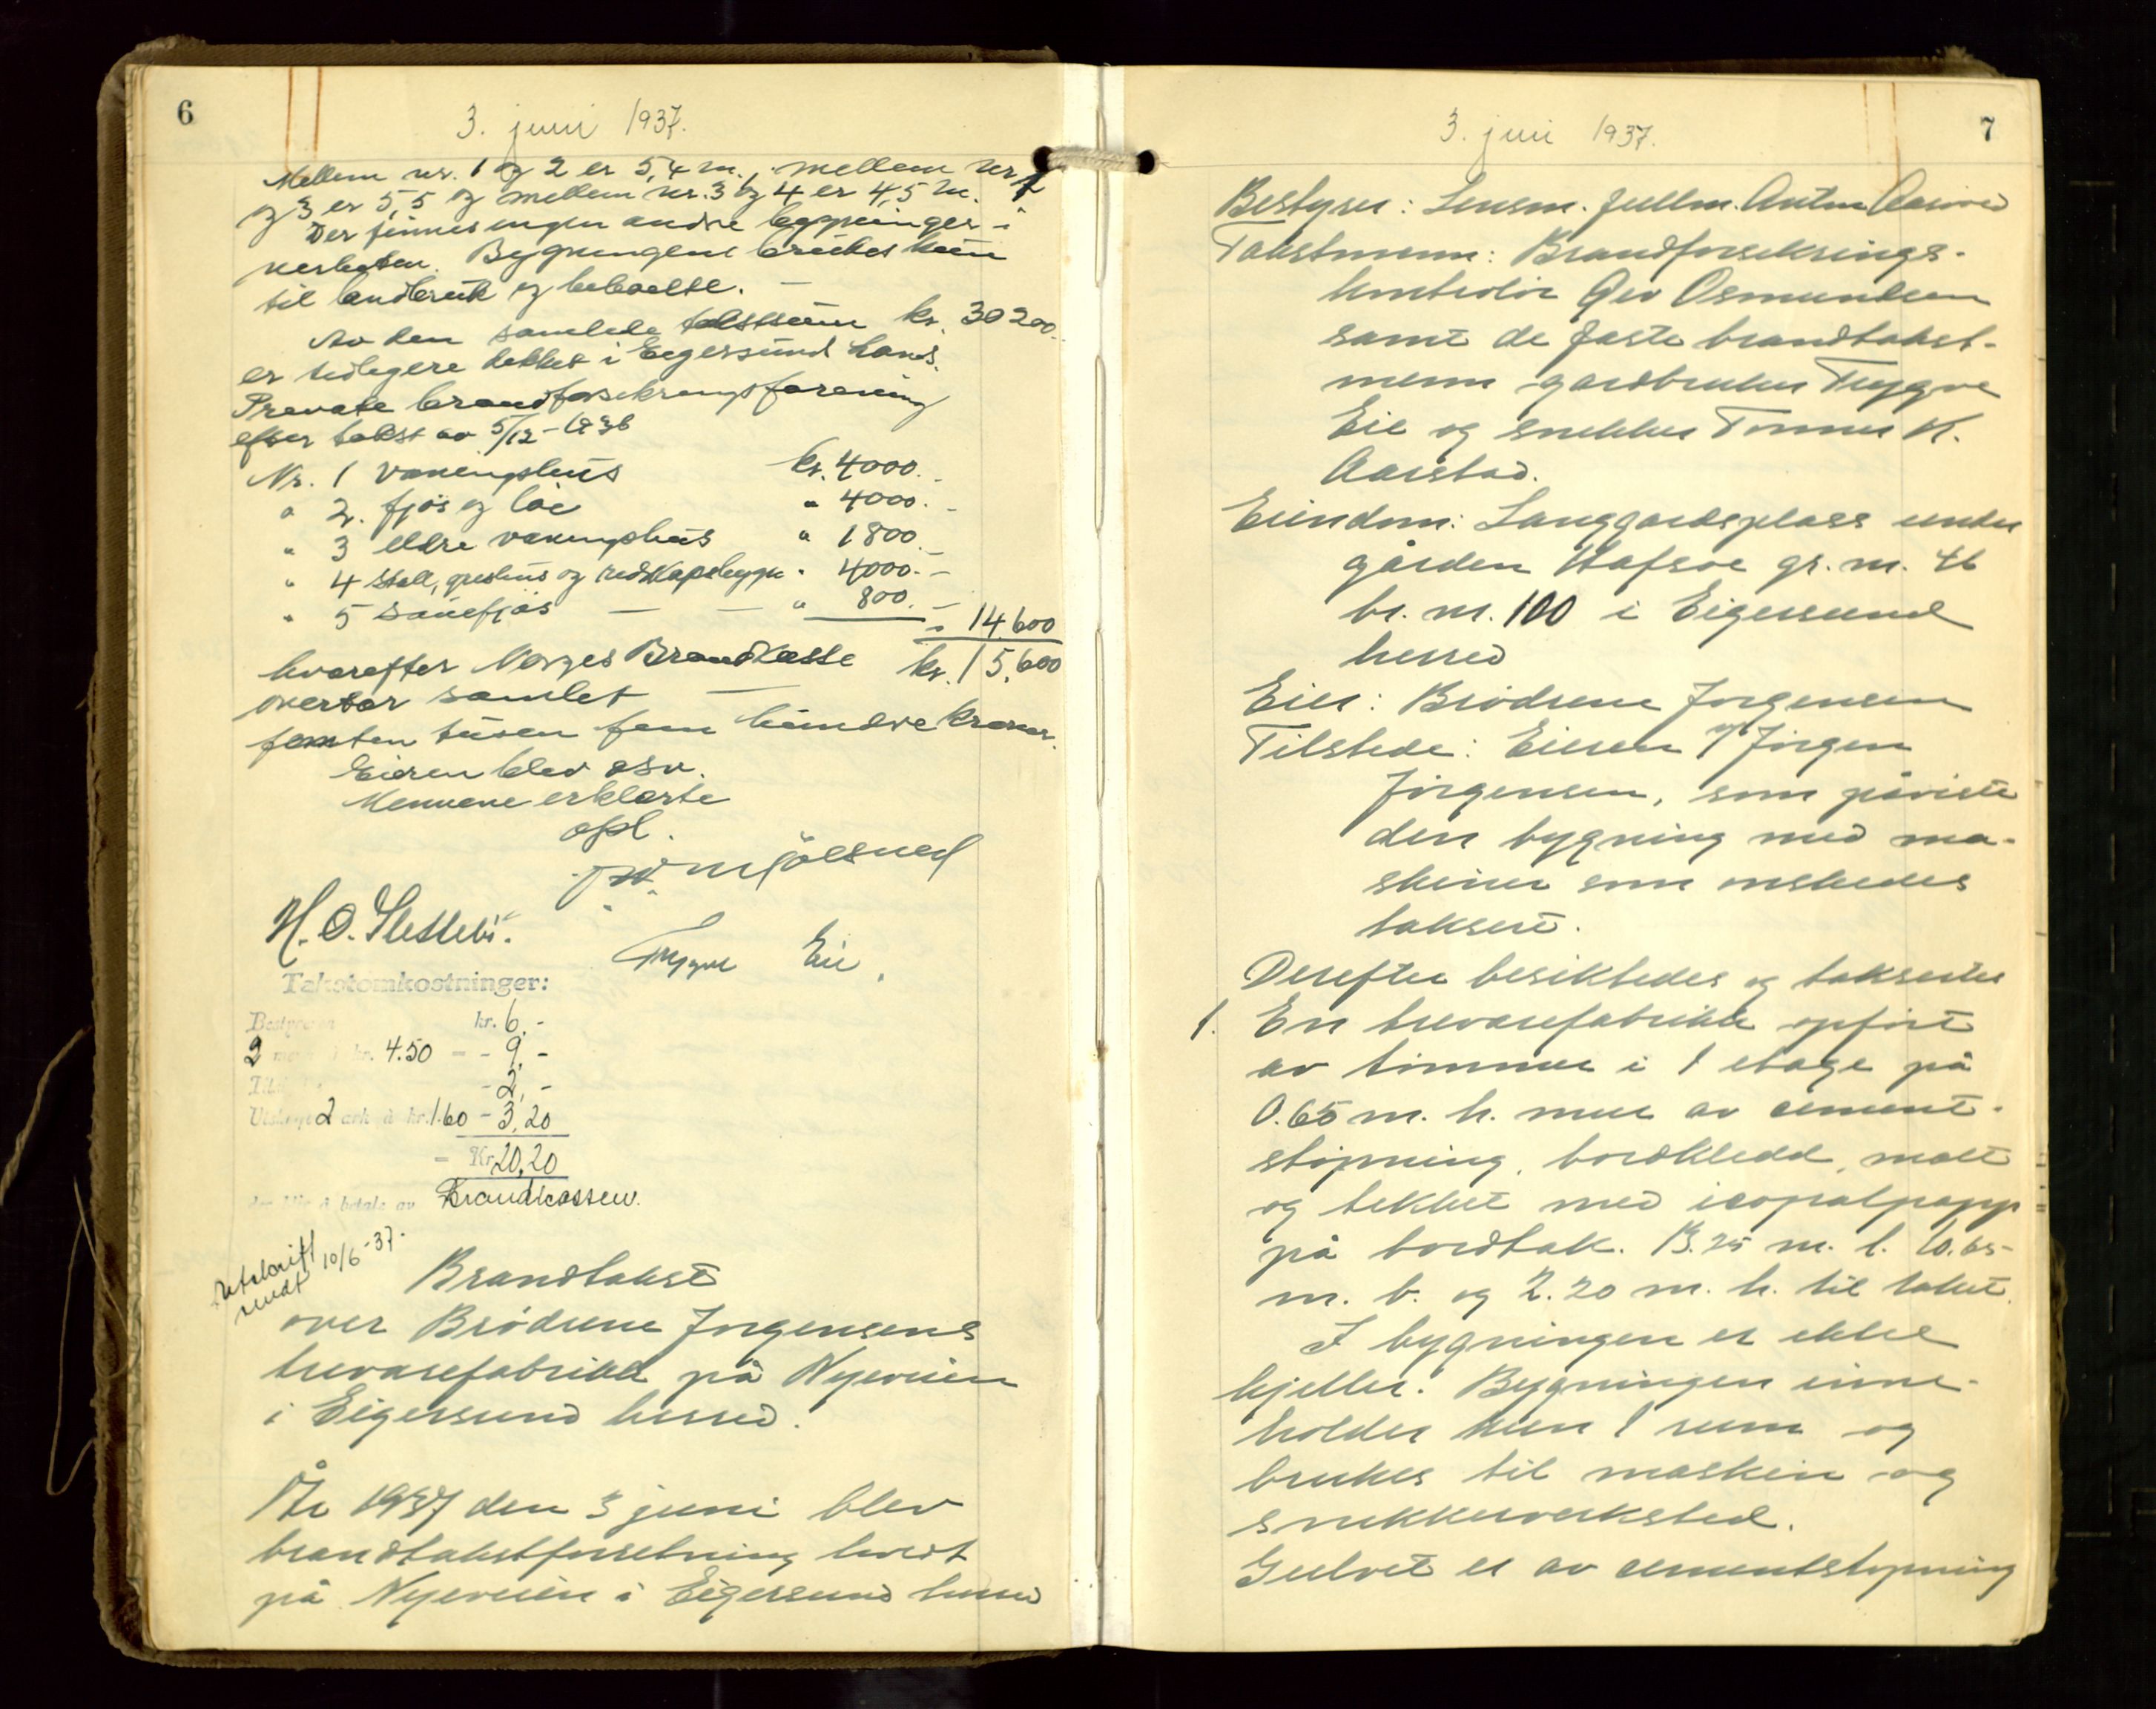 6
3. juni 1937.
Mellem nr. 1 og 2 er 5,4 m., mellem nr 2
og 3 er 5,5 og mellem nr. 3 og 4 er 4,5 m.
Der finnes ingen andre bygninger i
nerheten. Bygningene brukes kun
til landbruk og beboelse. —
Av den samlede takstsum kr. 30 200.
er tidligere dekket i Eegersund Lands.
Private brandforsikringsforening
efter takst av 5/12-1936
Nr. 1 vaaningshus kr. 4000.-
" 2. fjøs og løe " 4000.-
" 3 eldre vaaningshus " 1800.-
" 4 stall, grishus og redskapsbygn " 4000.-
" 5 sauefjøs — — " 800.-
" 14.600
hvorefter Norges Brandkasse kr. 15,600
overtar samlet —
femten tusen fem hundre kroner.
Eieren blev osv.
Mennene erklærte
opl.
H. O. Slettebø.
Trygve Eie.
Takstomkostninger:
Bestyreren kr. 6.-
2 menn à kr. 4.50 = - 9.-
- 2,-
Utskrift 2 ark à kr. 1.60 - 3,20
= Kr. 20,20
der blir å betale av Brandkassen.
Utskrift 10/6-37.
sendt
Brandtakst
over Brødrene Jørgensens
trevarefabrikk på Nyeveien
i Eigersund herred.
År 1937 den 3 juni blev
brandtakstforretning holdt
på Nyeveien i Eigersund herred
7
3. juni 1937.
Bestyrer: Lensm. fullm. Anton Aasved
Takstmenn: Brandforsikrings-
kontrolør Gev Osmundsen
samt de faste brandtakst-
menn gardbruker Trygve
Eie og snekker Tønnes K.
Aarstad.
Eiendom: Langgardsplass under
gården Hafsøe gr. nr. 46
br. nr. 100 i Eigersund
herred
Eier: Brødrene Jørgensen
Tilstede: Eieren v/ Jørgen
Jørgensen, som påviste
den bygning med ma-
skiner som ønskedes
taksert.
Derefter besiktedes og taksertes
1. En trevarefabrikk opført
av tømmer i 1 etage på
0.65 m. h. mur av cement-
støpning, bordkledd, malt
og tekket med icopalpapp
på bordtak. 13.25 m. l. 10.65
m. b. og 2.20 m. h. til taket.
I bygningen er ikke
kjeller. Bygningen inne-
holder kun 1 rum og
brukes til maskin og
snekkerverksted.
Gulvet er av cementstøpning